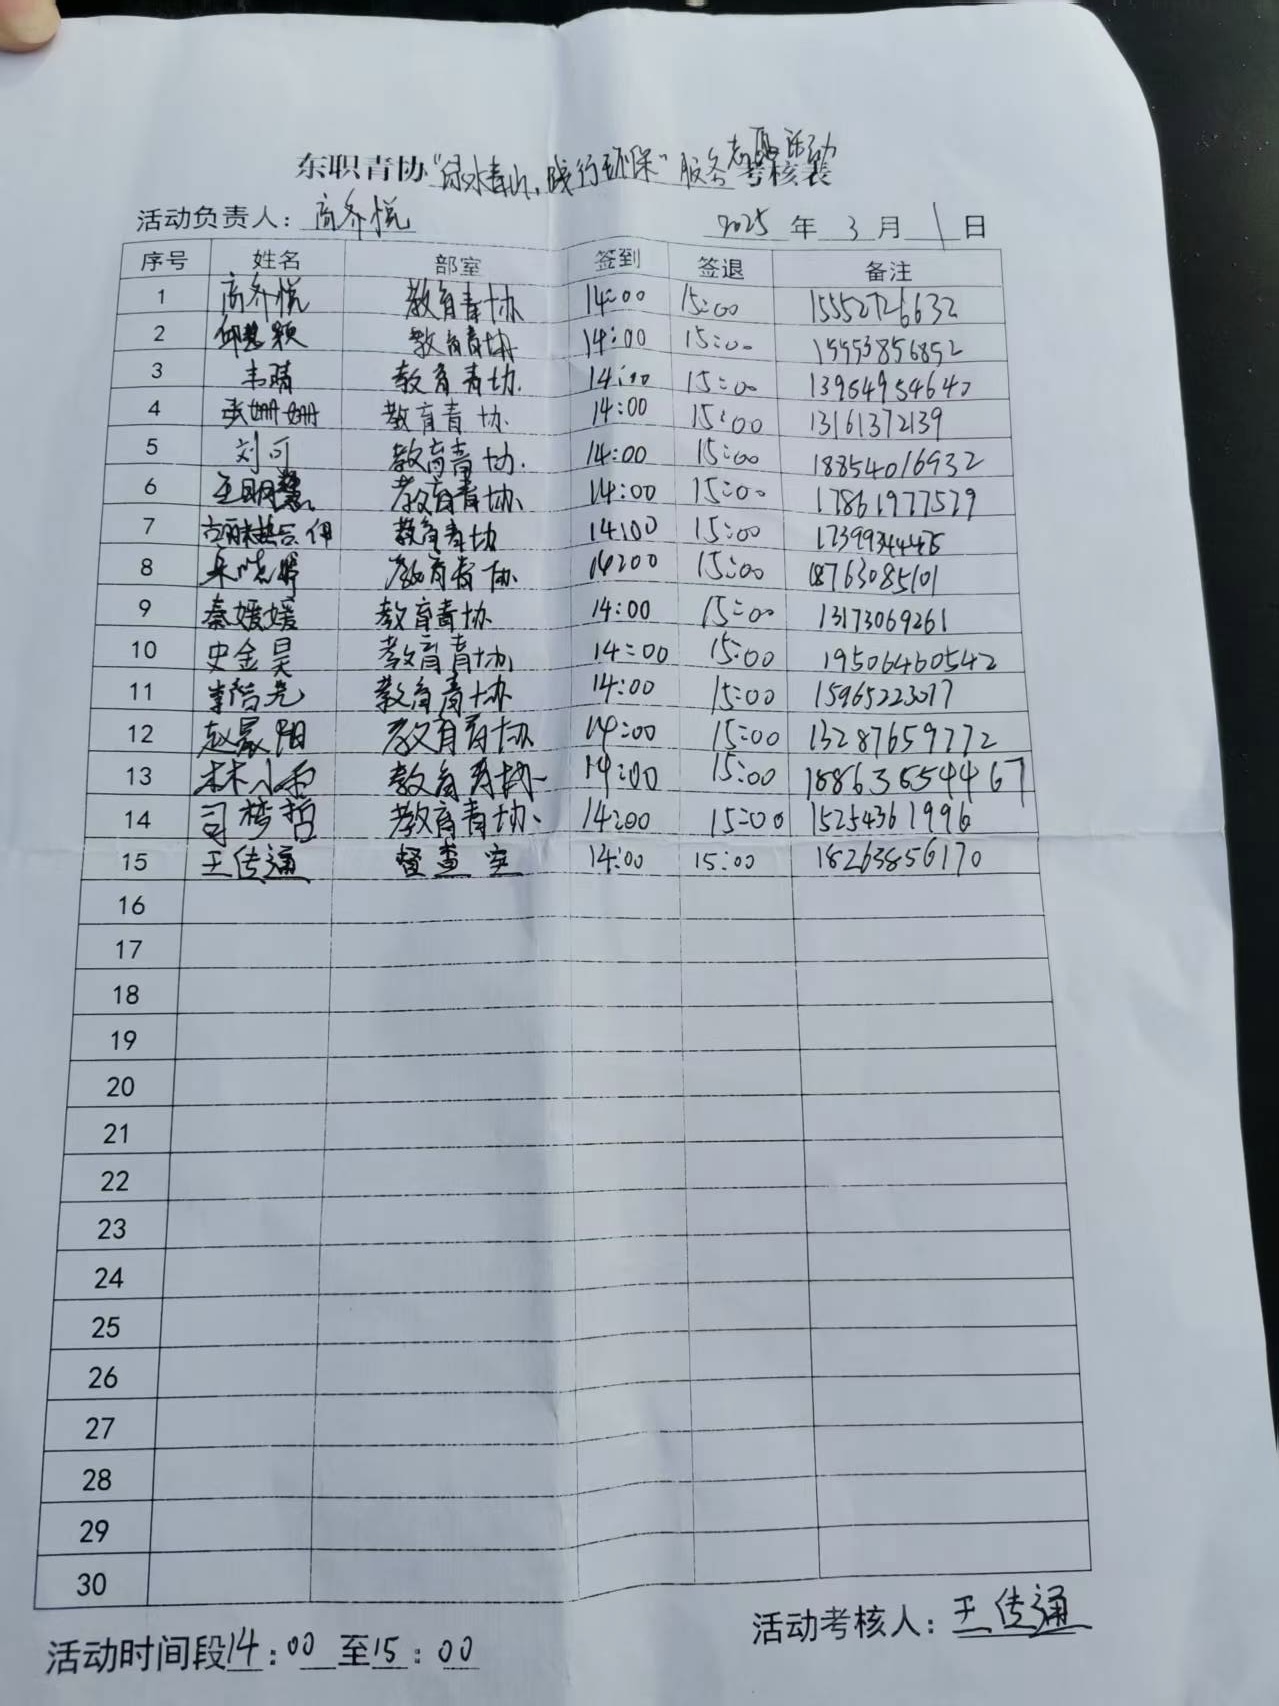 东职青协“绿水青山、践行环保”服务志愿活动考核表
活动负责人：高乔悦 2025年3月1日
序号 姓名 部室 签到 签退 备注
1 高乔悦 教育青协 14:00 15:00 15552726632
2 教育青协 14:00 15:00 15553856852
3 韦晴 教育青协. 14:00 15:00 13954954642
4 张姗姗 教育青协. 14:00 15:00 13161372139
5 刘可 教育青协. 14:00 15:00 18854016932
6 教育青协. 14:00 15:00 17861977579
7 教育青协 14:00 15:00
8 教育青协 14:00 15:00 18763085101
9 秦媛媛 教育青协. 14:00 15:00 13173069261
10 史金昊 教育青协 14:00 15:00 19506460542
11 教育青协 14:00 15:00 15965223077
12 赵晟阳 教育青协 14:00 15:00 13287659772
13 林小雨 教育青协 14:00 15:00 18863654467
14 司梦哲 教育青协、 14:00 15:00 15254361996
15 王传通 督查室 14:00 15:00 18263856170
16
17
18
19
20
21
22
23
24
25
26
27
28
29
30
活动考核人：王传通
活动时间段14:00至15:00